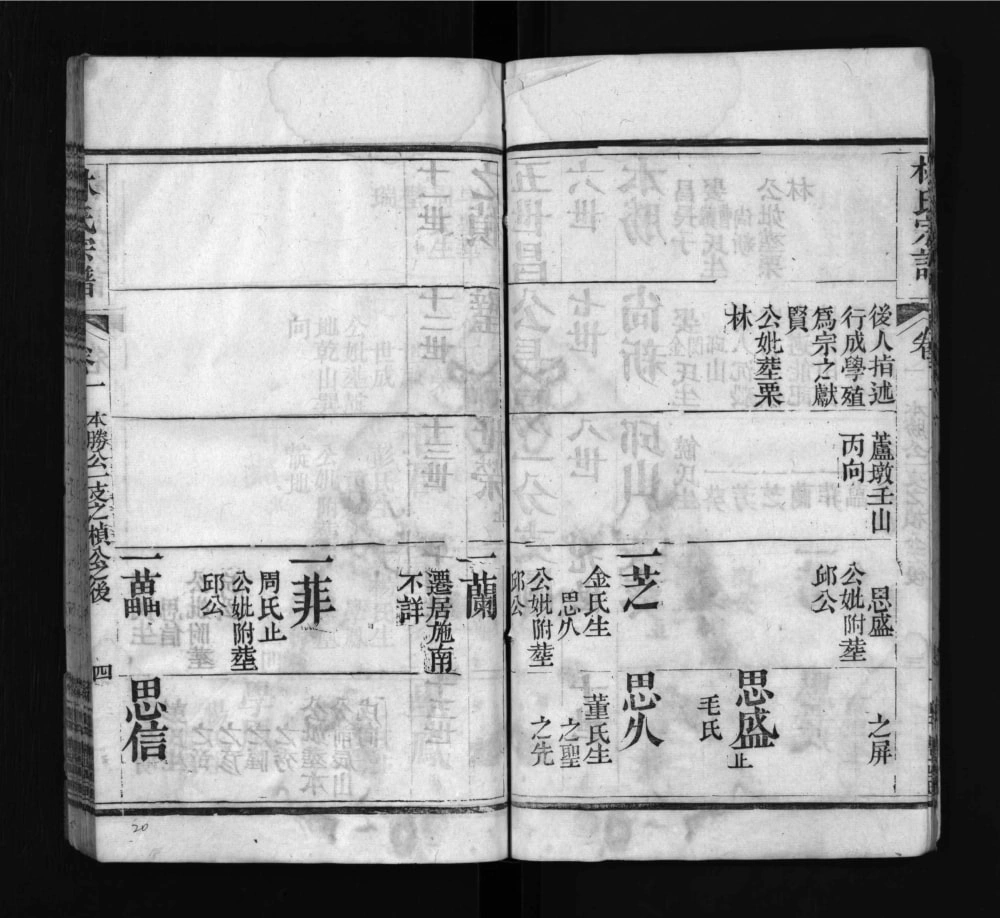 林氏宗譜
後人指述
行成學殖
為宗之獻
賢
公妣塟栗
林
蘆墩壬山
丙向
思盛
公妣附塟
邱公
一芝
金氏生
思久
公妣附塟
邱公
之屏
思盛止
毛氏
思久
董氏生
之聖
之先
一蘭
遷居施南
不詳
一菲
周氏止
公妣附塟
邱公
一藟
思信
林氏宗譜
卷一
本勝公一支之楨公之後
四
20